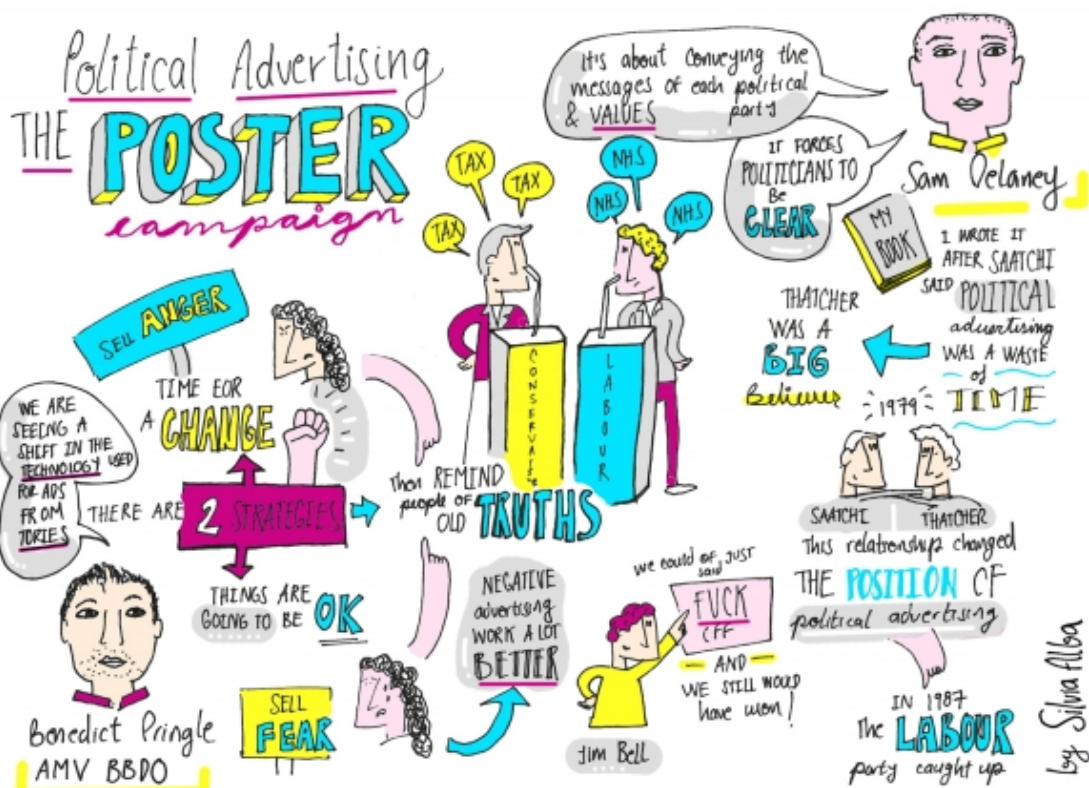 Political Advertising
THE POSTER
campaign
It's about conveying the
messages of each political
& VALUES party
IT FORCES
POLITICIANS TO
Be
CLEAR
Sam Delaney
MY
BOOK
I WROTE IT
AFTER SAATCHI
SAID POLITICAL
advertising
WAS A WASTE
of
TIME
THATCHER
WAS A
BIG
Believer
1979
SAATCHI THATCHER
This relationship changed
THE POSITION OF
political advertising
IN 1987
The LABOUR
party caught up
TAX
TAX
TAX
NHS
NHS
NHS
CONSERVATIVE
LABOUR
SELL ANGER
TIME FOR
A CHANGE
WE ARE
SEEING A
SHIFT IN THE
TECHNOLOGY USED
FOR ADS
FROM
TORIES
THERE ARE 2 STRATEGIES
Then REMIND
people of
OLD TRUTHS
THINGS ARE
GOING TO BE OK
Benedict Pringle
AMV BBDO
SELL
FEAR
NEGATIVE
advertising
WORK A LOT
BETTER
we could of just
said
FUCK
OFF
AND
WE STILL WOULD
have won!
Jim Bell
by Silvia Alba